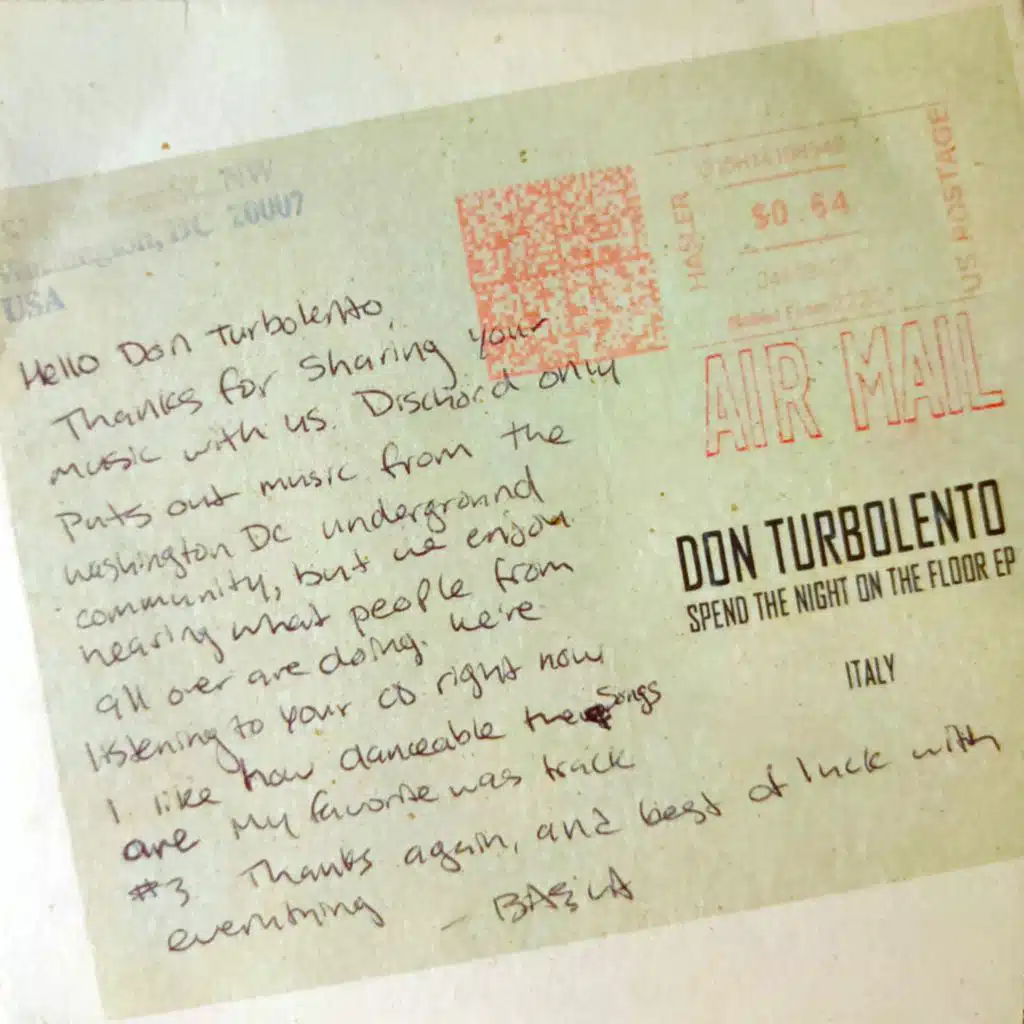 NW
DC 20007
USA
HASLER
$0.64
US POSTAGE
AIR MAIL
Hello Don Turbolento,
Thanks for sharing your
music with us. Dischord only
puts out music from the
Washington DC underground
community, but we enjoy
hearing what people from
all over are doing. We're
listening to your CD right now
I like how danceable the songs
are My favorite was track
#3 Thanks again, and best of luck with
everything
- BASLA
DON TURBOLENTO
SPEND THE NIGHT ON THE FLOOR EP
ITALY